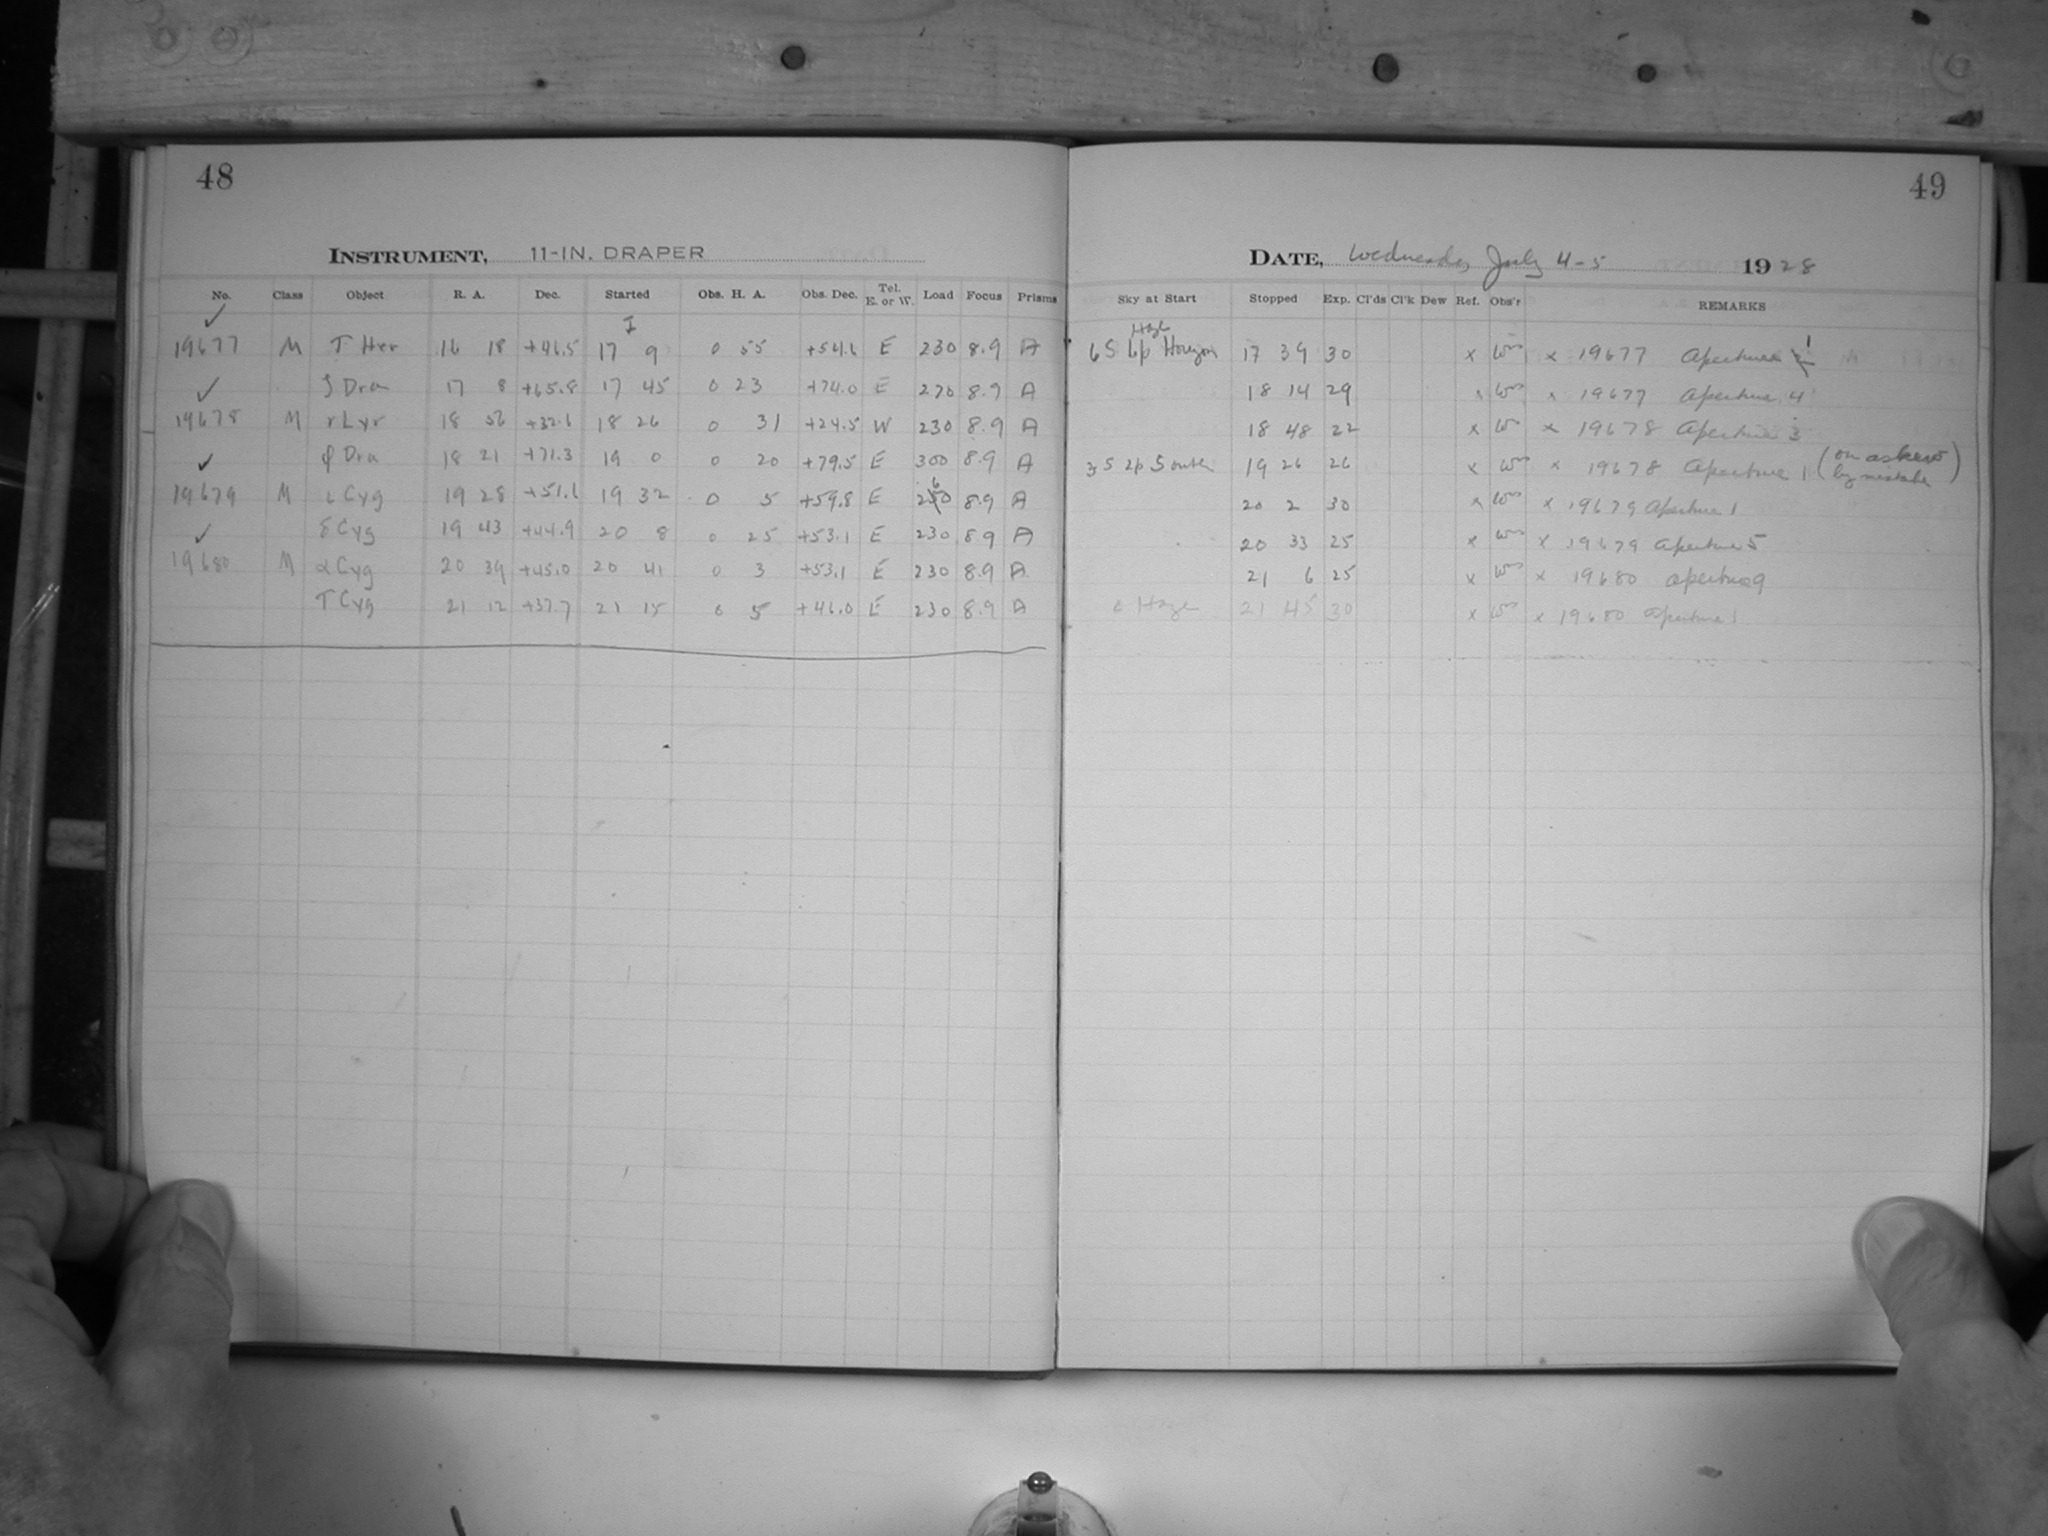 48
INSTRUMENT, 11-IN. DRAPER
No. Class Object R. A. Dec. Started Obs. H. A. Obs. Dec. Tel. E. or W. Load Focus Prisms
✓ I
19677 M τ Her 16 18 +46.5 17 9 0 55 +54.6 E 230 8.9 A
✓ ζ Dra 17 8 +65.8 17 45 0 23 +74.0 E 270 8.9 A
19678 M γ Lyr 18 56 +32.6 18 26 0 31 +24.5 W 230 8.9 A
✓ φ Dra 18 21 +71.3 19 0 0 20 +79.5 E 300 8.9 A
19679 M ι Cyg 19 28 +51.6 19 32 0 5 +59.8 E 260 8.9 A
✓ δ Cyg 19 43 +44.9 20 8 0 25 +53.1 E 230 8.9 A
19680 M α Cyg 20 39 +45.0 20 41 0 3 +53.1 E 230 8.9 A
τ Cyg 21 12 +37.7 21 15 0 5 +46.0 E 230 8.9 A
49
DATE, Wednesday July 4-5 1928
Sky at Start Stopped Exp. Cl'ds Cl'k Dew Ref. Obs'r REMARKS
Haze
6S 6p Horizon 17 39 30 x x 19677 Aperture 1
18 14 29 x x 19677 Aperture 4
18 48 22 x x 19678 Aperture 3
3S 2p South 19 26 26 x x 19678 Aperture 1 (on askew by mistake)
20 2 30 x x 19679 Aperture 1
20 33 25 x x 19679 Aperture 5
21 6 25 x x 19680 Aperture 9
c Haze 21 45 30 x x 19680 Aperture 1